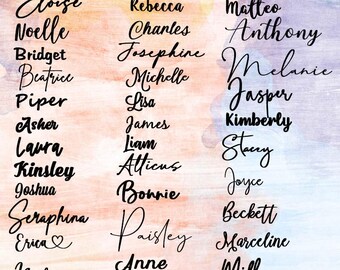 Eloise
Noelle
Bridget
Beatrice
Piper
Asher
Laura
Kinsley
Joshua
Seraphina
Erica
Rebecca
Charles
Josephine
Michelle
Lisa
James
Liam
Atticus
Bonnie
Paisley
Anne
Matteo
Anthony
Melanie
Jasper
Kimberly
Stacey
Joyce
Beckett
Marceline